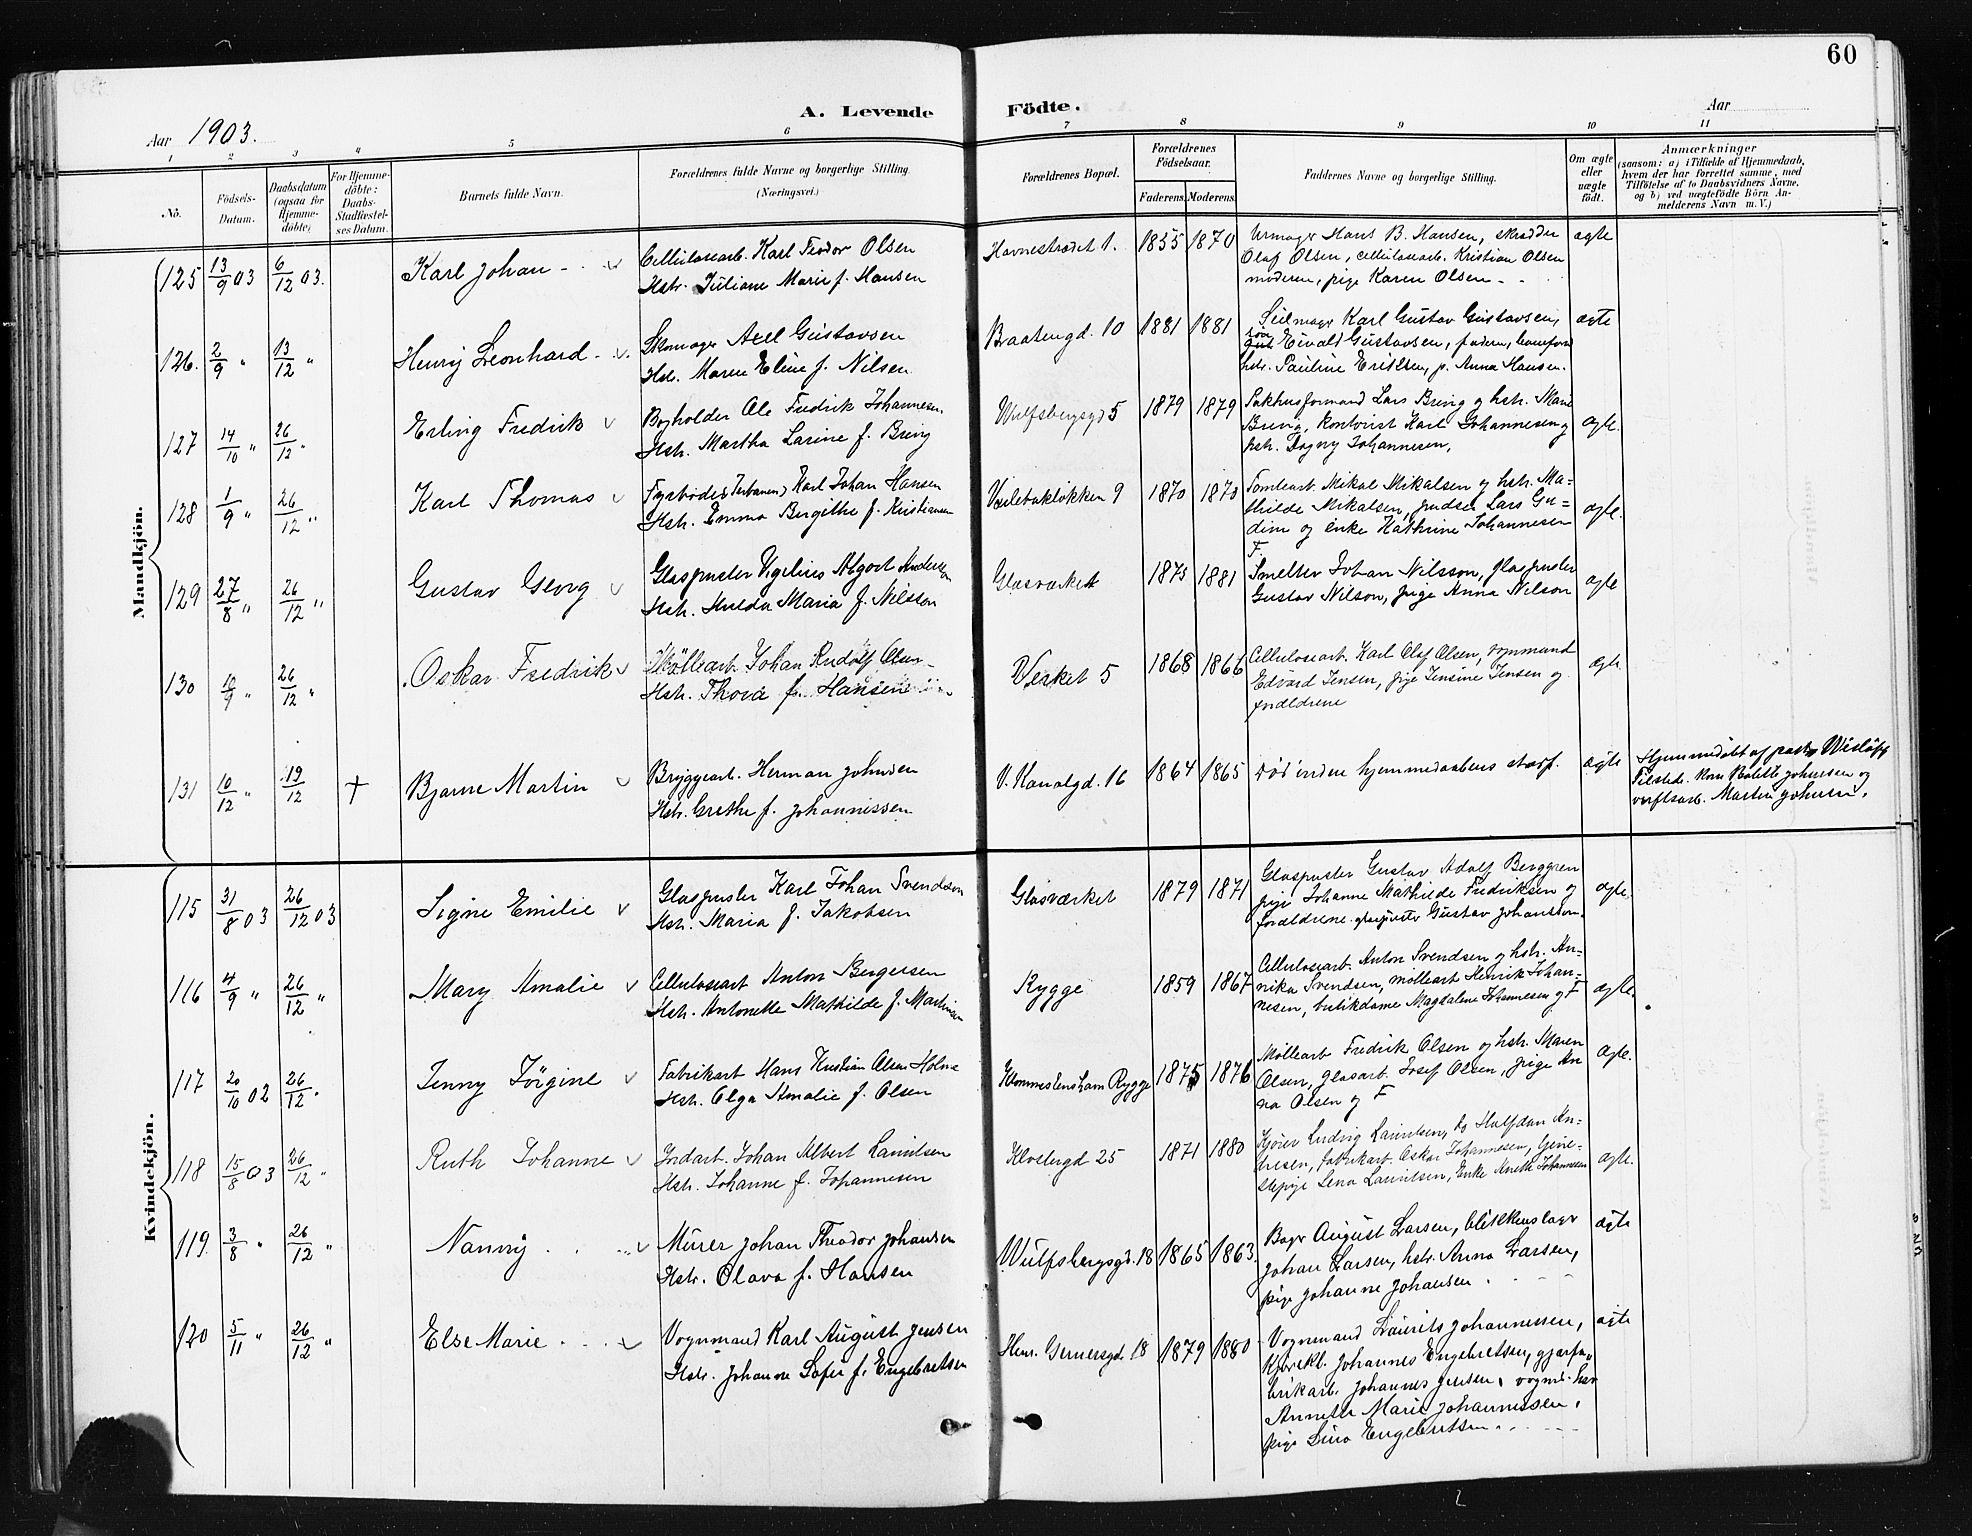 60
A. Levende Födte.
Aar 1903.
Aar
1 2 3 4 5 6 7 8 9 10 11
No.
Födsels-Datum.
Daabsdatum (ogsaa for Hjemme-döbte)
For Hjemme-döbte: Daabs-Stadfæstel-ses Datum.
Barnets fulde Navn.
Forældrenes fulde Navne og borgerlige Stilling. (Næringsvei.)
Forældrenes Bopæl.
Forældrenes Födselsaar.
Faderens Moderens
Faddernes Navne og borgerlige Stilling.
Om ægte eller uægte födt.
Anmærkninger
(saasom: a) i Tilfælde af Hjemmedaab,
hvem der har forrettet samme, med
Tilföielse af to Daabsvidners Navne,
og b) ved uægtefödte Börn An-
melderens Navn m. V.)
Mandkjön.
125 13/9 03 6/12 03. Karl Johan
Cellulosearb. Karl Teodor Olsen
Hstr. Juliane Marie f. Hansen
Havnestrædet 1. 1855 1870
Urmager Hans B. Hansen, skrædder
Olaf Olsen, cellulosearb. Kristian Olsen
moderen, pige Karen Olsen
ægte
126. 2/9 " 13/12 " Henry Leonhard
Skomager Axel Gustavsen
Hstr. Maren Eline f. Nilsen
Braatengd. 10 1881 1881
Seilmager Karl Gustav Gustavsen,
Eivald Gustavsen, faderen,
hstr. Pauline Eriksen, p. Anna Hansen.
ægte
127 14/10 " 26/12 " Erling Fredrik
Bogholder Ole Fredrik Johannesen
Hstr. Martha Larine f. Bring
Wulfsbergsgd 5 1879 1879
Pakhusformand Lars Bring og hstr. Marie
Bring, kontorist Karl Johannesen og
hstr. Dagny Johannesen,
ægte.
128 1/9 " 26/12 " Karl Thomas
Fyrbøder (Jerbanen) Karl Johan Hansen
Hstr. Emma Bergithe f. Kristiansen
Vælebakløkken 9 1870 1870
Tomtearb. Mikal Mikalsen og hstr. Ma-
thilde Mikalsen, Lars Gu-
dim og enke Kathrine Johannesen
F.
ægte.
129 27/8 " 26/12 " Gustav Georg
Glaspuster Vigelius Algot Andersen
Hstr. Hulda Maria f. Nilsson
Glasværket 1875 1881
Smelter Johan Nilsson, glaspuster
Gustav Nilson, pige Anna Nilson
ægte
130 10/9 " 26/12 " Oskar Fredrik
Møllearb. Johan Rudolf Olsen
Hstr. Thora f. Hansen
Verket 5 1868 1866
Cellulosearb. Karl Olaf Olsen, vognmand
Edvard Jensen, pige Jensine Jensen og
forældrene
ægte
131 10/12 " 19/12 † Bjarne Martin
Bryggearb. Herman Johnsen
Hstr. Grethe f. Johannissen
V. Kanalgd. 16 1864 1865
død inden hjemmedaabens stadf.
ægte
Hjemmedøbt af pastor Wisløff
Tilstede. Johnsen og
verftsarb. Martin Johnsen.
Kvindekjön.
115 31/8 03 26/12 03 Signe Emilie
Glaspuster Karl Johan Svendsen
Hstr. Maria f. Jakobsen
Glasværket 1879 1871
Glaspuster Gustav Adolf Berggren
pige Johanne Mathilde Fredriksen og
forældrene. glaspuster Gustav Johansson.
ægte.
116 4/9 " 26/12 " Mary Amalie
Cellulosearb Anton Bergersen
Hstr. Antonette Mathilde f. Martinsen
Rygge 1859 1867
Cellulosearb. Anton Svendsen og hstr. An-
nika Svendsen, møllearb Henrik Johan-
nesen, butikdame Magdalene Johannesen og F
ægte.
117 20/10 02 26/12 " Jenny Jörgine
Fabrikarb Hans Kristian Olsen Holme
Hstr. Olga Amalie f. Olsen
Klommestensham Rygge 1875 1876
Møllearb Fredrik Olsen og hstr. Maren
Olsen, glasarb. Josef Olsen, pige An
na Olsen og F
ægte.
118 15/8 03 26/12 " Ruth Johanne
Jordarb. Johan Albert Lauritsen
Hstr. Johanne f. Johannesen
Klostergd 25 1871 1880
Kjører Ludvig Lauritsen, do Halfdan An-
dresen, fabrikarb. Oskar Johannesen, tjene-
stepige Lena Lauritsen, Enke Anette Johannesen
ægte.
119 3/8 " 26/12 " Nanny
Murer Johan Theodor Johansen
Hstr. Olava f. Hansen
Wulfsbergsgd. 18 1865 1863.
Bager August Larsen, blikkenslager
Johan Larsen, hstr. Anna Larsen,
pige Johanne Johansen
ægte
120 5/11 " 26/12 " Else Marie
Vognmand Karl August Jensen
Hstr. Johanne Sofie f. Engebretsen
Henr. Gernersgd. 18 1879 1880
Vognmand Laurits Johannessen,
Johannes Engebretsen, gjærfa-
brikarb. Johannes Jensen,
Annette Marie Johannessen,
pige Lina Engebretsen
ægte